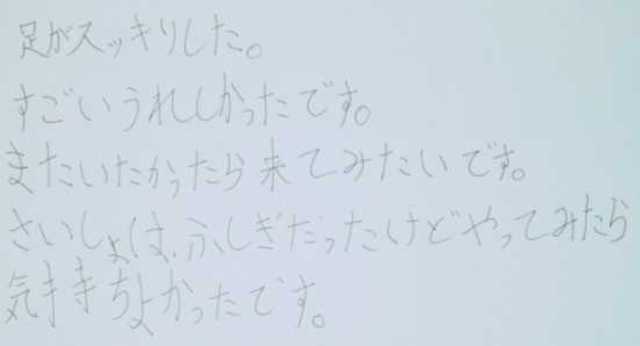 足がスッキリした。
すごいうれしかったです。
またいたかったら来てみたいです。
さいしょは、ふしぎだったけどやってみたら
気持ちよかったです。